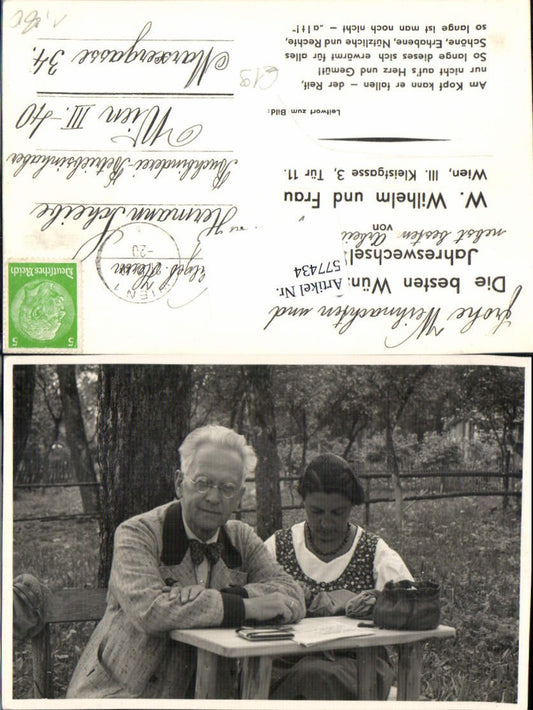 Frohe Weihnachten und
Die besten Wün
Jahreswechsel
nebst besten
von
W. Wilhelm und Frau
Wien, III. Kleistgasse 3, Tür 11.
Leitwort zum Bild:
Am Kopf kann er fallen – der Reif,
nur nicht auf's Herz und Gemüt!
So lange dieses sich erwärmt für alles
Schöne, Erhabene, Nützliche und Rechte,
so lange ist man noch nicht – "alt!"
Artikel Nr.
577434
5 5
Deutsches Reich
WIEN
-20
Hermann Scheibe
Buchbinderei Betriebsinhaber
Wien III. 40
Marxergasse 34.